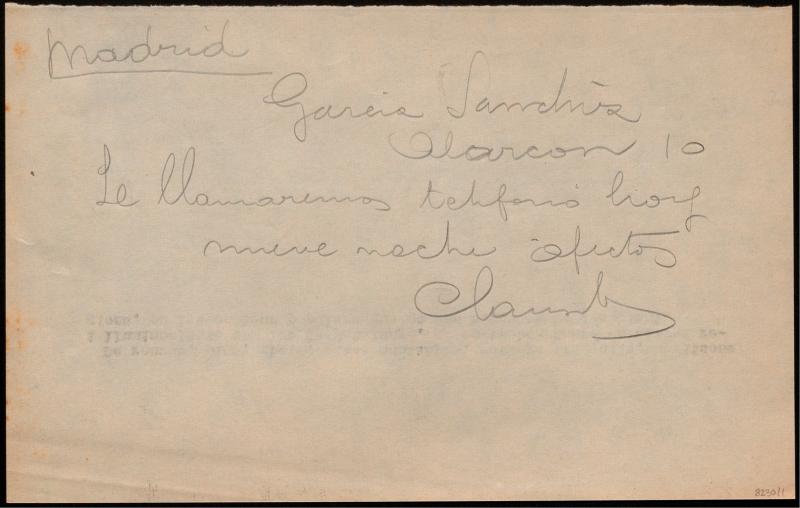 Madrid
Garcia Sanchis
Alarcon 10
Le llamaremos telefono hoy
nueve noche afectos
8230/1